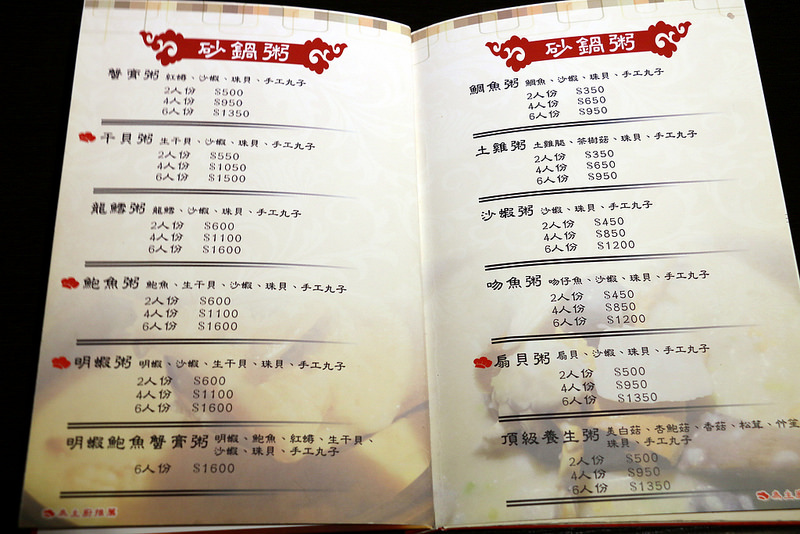 砂鍋粥
蟹膏粥 紅蟳、沙蝦、珠貝、手工丸子
2人份 $500
4人份 $950
6人份 $1350
干貝粥 生干貝、沙蝦、珠貝、手工丸子
2人份 $550
4人份 $1050
6人份 $1500
龍鱈粥 龍鱈、沙蝦、珠貝、手工丸子
2人份 $600
4人份 $1100
6人份 $1600
鮑魚粥 鮑魚、生干貝、沙蝦、珠貝、手工丸子
2人份 $600
4人份 $1100
6人份 $1600
明蝦粥 明蝦、沙蝦、生干貝、珠貝、手工丸子
2人份 $600
4人份 $1100
6人份 $1600
明蝦鮑魚蟹膏粥 明蝦、鮑魚、紅蟳、生干貝、
沙蝦、珠貝、手工丸子
6人份 $1600
為主廚推薦
砂鍋粥
鯛魚粥 鯛魚、沙蝦、珠貝、手工丸子
2人份 $350
4人份 $650
6人份 $950
土雞粥 土雞腿、茶樹菇、珠貝、手工丸子
2人份 $350
4人份 $650
6人份 $950
沙蝦粥 沙蝦、珠貝、手工丸子
2人份 $450
4人份 $850
6人份 $1200
吻魚粥 吻仔魚、沙蝦、珠貝、手工丸子
2人份 $450
4人份 $850
6人份 $1200
扇貝粥 扇貝、沙蝦、珠貝、手工丸子
2人份 $500
4人份 $950
6人份 $1350
頂級養生粥 美白菇、杏鮑菇、香菇、松茸、竹笙
珠貝、手工丸子
2人份 $500
4人份 $950
6人份 $1350
為主廚